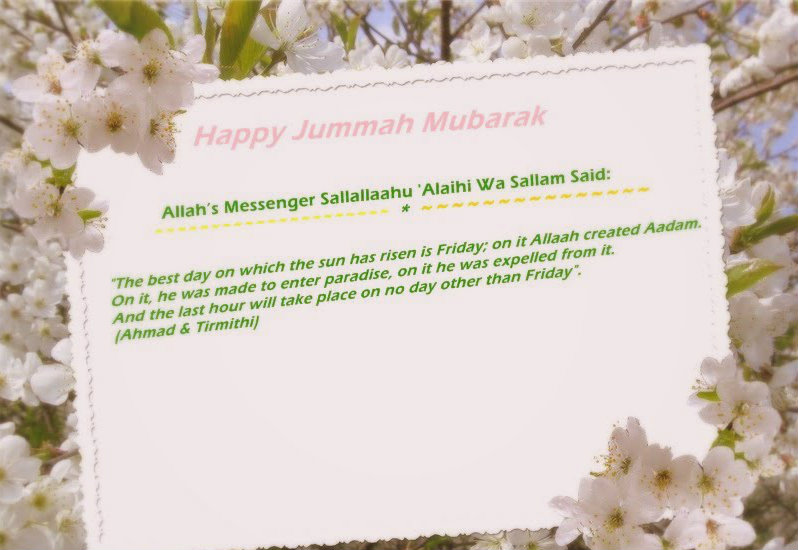 Happy Jummah Mubarak
Allah's Messenger Sallallaahu 'Alaihi Wa Sallam Said:
~~~~~~~~~~~~~~~~~~~~ * ~~~~~~~~~~~~~~~
"The best day on which the sun has risen is Friday; on it Allaah created Aadam.
On it, he was made to enter paradise, on it he was expelled from it.
And the last hour will take place on no day other than Friday".
(Ahmad & Tirmithi)